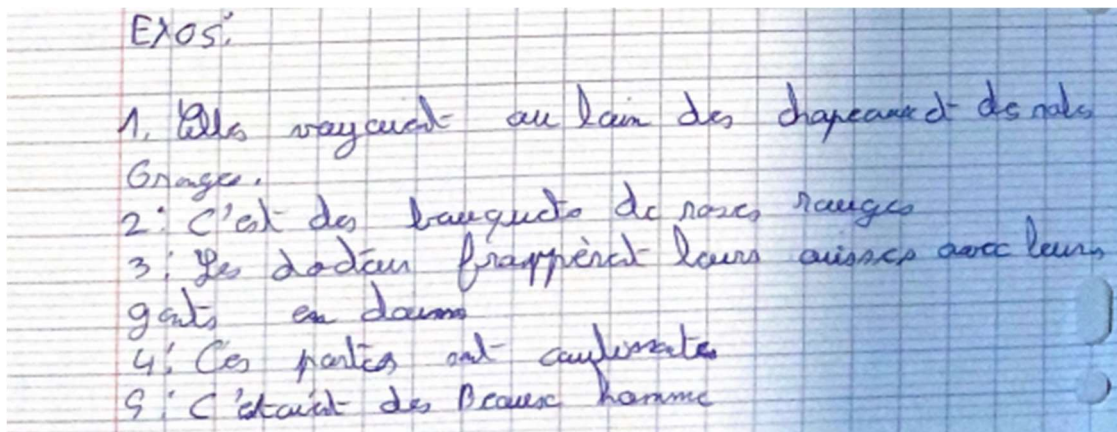 Exos:
1. Elles voyaient au loin des chapeaux et des robes
Oranges.
2: C'est des bouquets de roses rouges
3: Les docteur frappèrent leurs cuisses avec leurs
gants en
4: Ces portes ont
5: C'étaient des Beaux homme